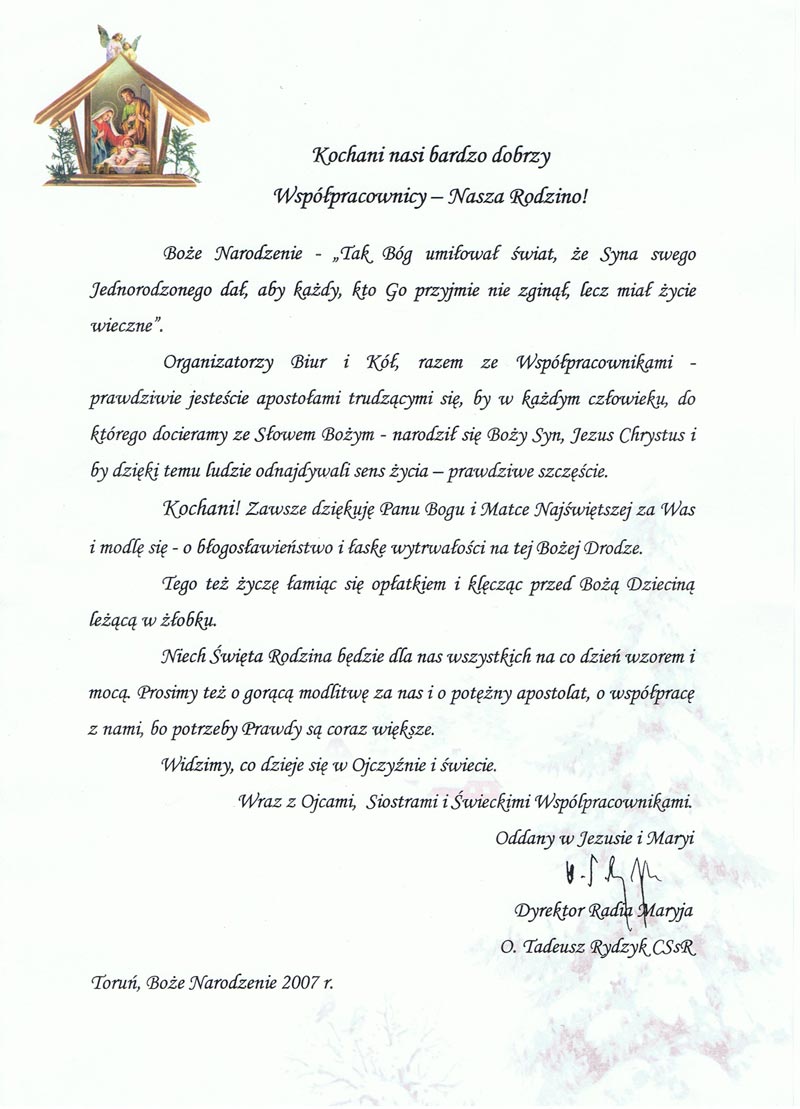 Kochani nasi bardzo dobrzy
Współpracownicy – Nasza Rodzino!
Boże Narodzenie - „Tak Bóg umiłował świat, że Syna swego
Jednorodzonego dał, aby każdy, kto Go przyjmie nie zginął, lecz miał życie
wieczne”.
Organizatorzy Biur i Kół, razem ze Współpracownikami -
prawdziwie jesteście apostołami trudzącymi się, by w każdym człowieku, do
którego docieramy ze Słowem Bożym - narodził się Boży Syn, Jezus Chrystus i
by dzięki temu ludzie odnajdywali sens życia – prawdziwe szczęście.
Kochani! Zawsze dziękuję Panu Bogu i Matce Najświętszej za Was
i modlę się - o błogosławieństwo i łaskę wytrwałości na tej Bożej Drodze.
Tego też życzę łamiąc się opłatkiem i klęcząc przed Bożą Dzieciną
leżącą w żłobku.
Niech Święta Rodzina będzie dla nas wszystkich na co dzień wzorem i
mocą. Prosimy też o gorącą modlitwę za nas i o potężny apostolat, o współpracę
z nami, bo potrzeby Prawdy są coraz większe.
Widzimy, co dzieje się w Ojczyźnie i świecie.
Wraz z Ojcami, Siostrami i Świeckimi Współpracownikami.
Oddany w Jezusie i Maryi
Dyrektor Radia Maryja
O. Tadeusz Rydzyk CSsR
Toruń, Boże Narodzenie 2007 r.